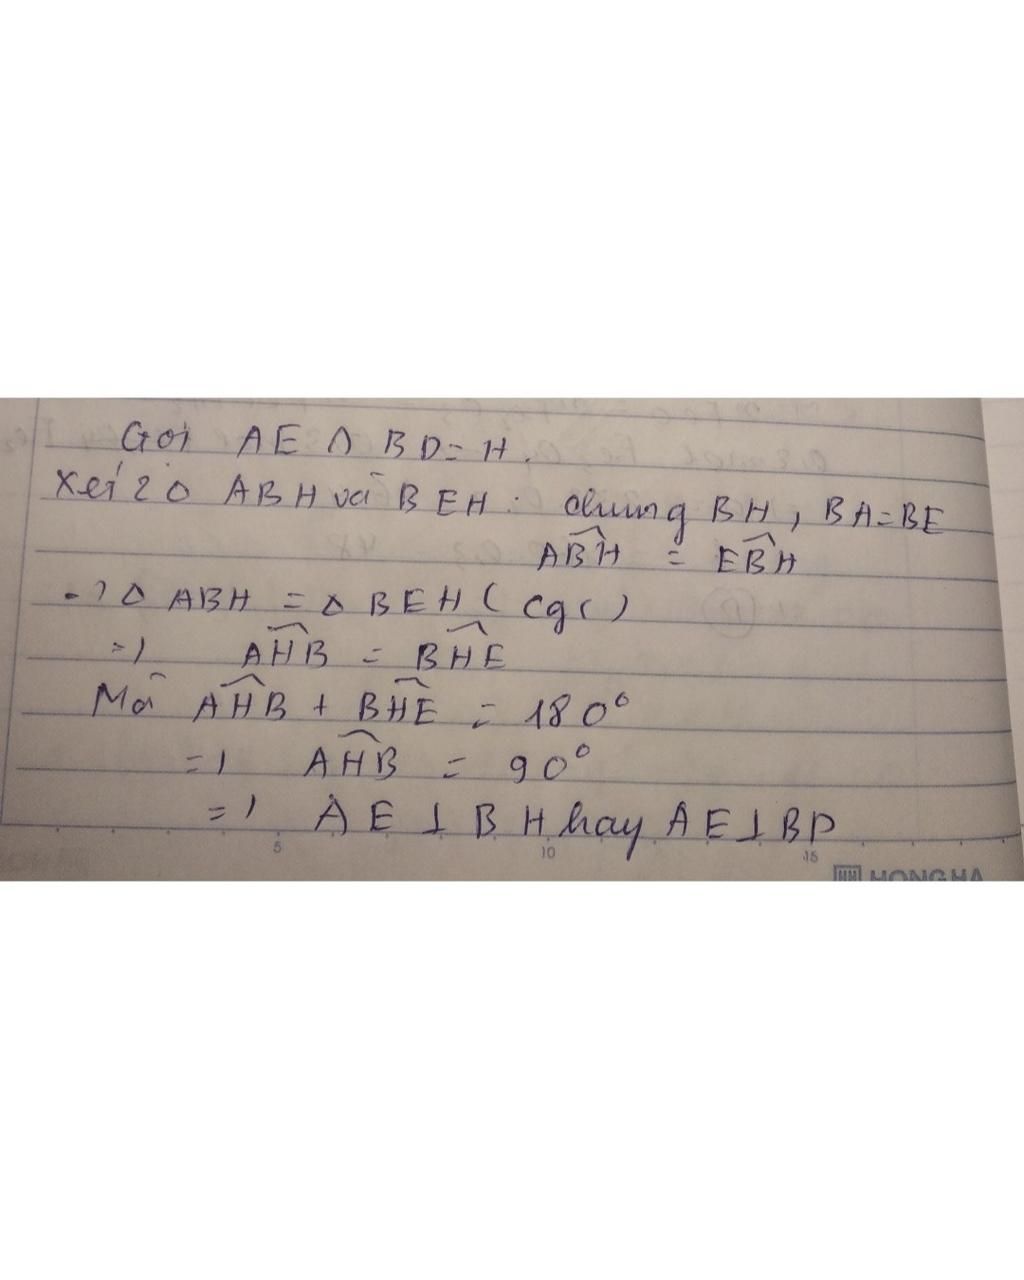 Gọi AE ∩ BD = H.
Xét 2 Δ ABH và BEH : chung BH, BA = BE
\widehat{ABH} = \widehat{EBH}
=> Δ ABH = Δ BEH (cgc)
=> \widehat{AHB} = \widehat{BHE}
Mà \widehat{AHB} + \widehat{BHE} = 180°
=> \widehat{AHB} = 90°
=> AE ⊥ BH hay AE ⊥ BD
5 10 15
HONG HA